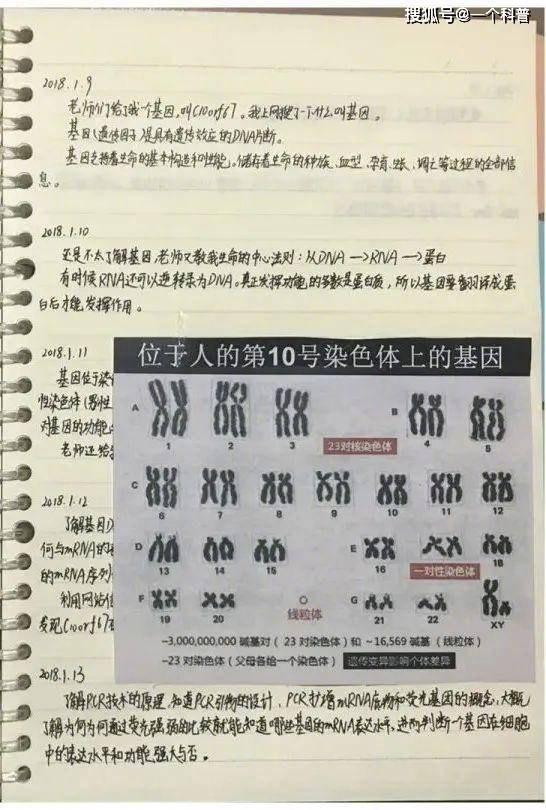 搜狐号@一个科普
2018.1.9
老师们给了我一个基因,叫C10orf67。我上网搜了一下什么叫基因。
基因(遗传因子)是具有遗传效应的DNA片断。
基因支持着生命的基本构造和性能。储存着生命的种族、血型、孕育、生长、凋亡等过程的全部信
息。
2018.1.10
还是不太了解基因,老师又教我生命的中心法则:从DNA→RNA→蛋白
有时候RNA还可以逆转录为DNA。真正发挥功能的多数是蛋白质,所以基因要翻译成蛋
白后才能发挥作用。
2018.1.11
基因位于染
性染色体(男性
对基因的功能
老师还给
2018.1.12
了解基因D
何与mRNA的
的mRNA序列
利用网站
发现C10orf67
位于人的第10号染色体上的基因
A
1
2
3
B
4
5
23对核染色体
C
6
7
8
9
10
11
12
D
13
14
15
E
16
18
一对性染色体
F
19
20
线粒体
G
21
22
XY
–3,000,000,000 碱基对(23对染色体)和 ~16,569 碱基(线粒体)
–23 对染色体(父母各给一个染色体)
遗传变异影响个体差异
2018.1.13
了解PCR技术的原理,知道PCR引物的设计、PCR扩增mRNA底物和荧光基因的概念,大概
了解为何为何通过荧光强弱的比较就能知道哪些基因的mRNA表达水平,进而判断一个基因在细胞
中的表达水平和功能强大与否。